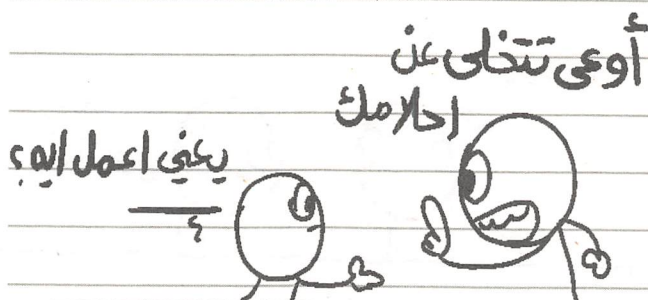 أوعى تتخلى عن
احلامك
يعني اعمل ايه؟
؟